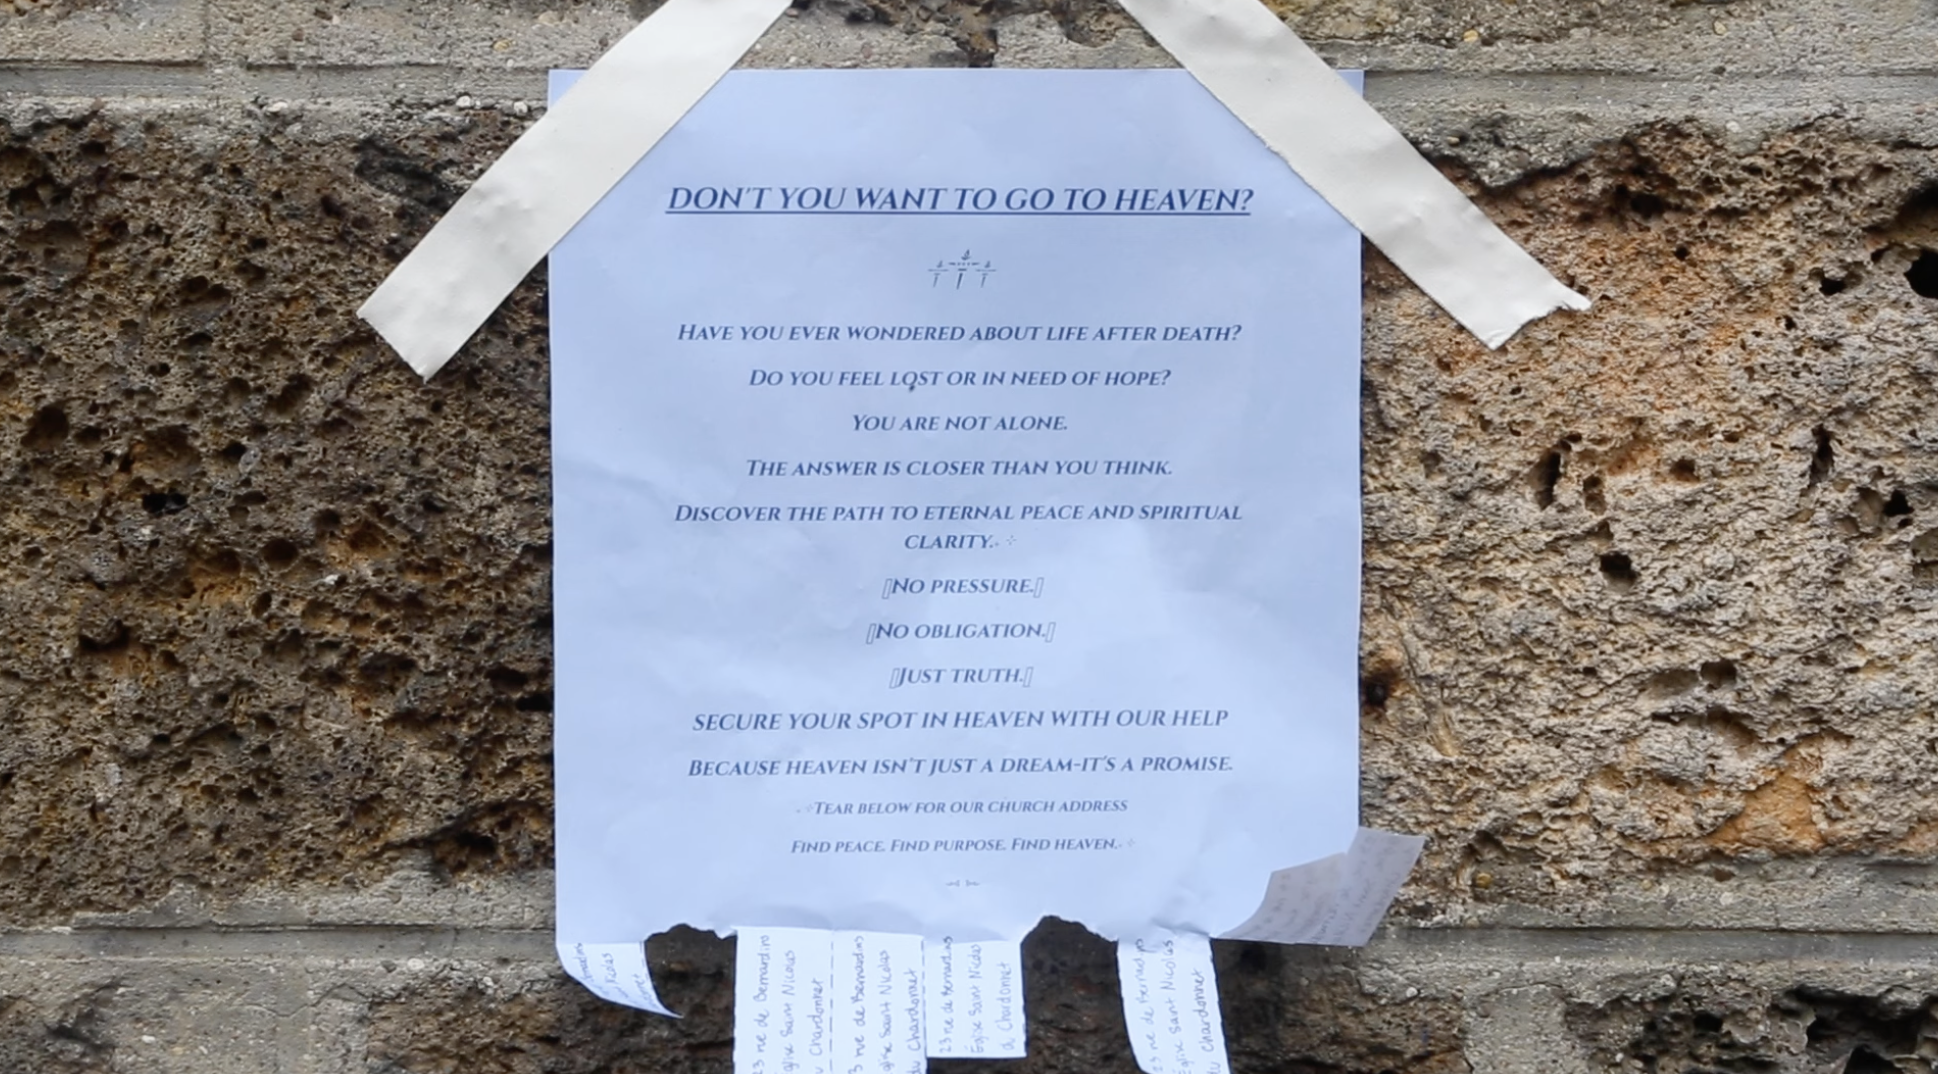 DON'T YOU WANT TO GO TO HEAVEN?
HAVE YOU EVER WONDERED ABOUT LIFE AFTER DEATH?
DO YOU FEEL LOST OR IN NEED OF HOPE?
YOU ARE NOT ALONE.
THE ANSWER IS CLOSER THAN YOU THINK.
DISCOVER THE PATH TO ETERNAL PEACE AND SPIRITUAL
CLARITY.
NO PRESSURE.
NO OBLIGATION.
JUST TRUTH.
SECURE YOUR SPOT IN HEAVEN WITH OUR HELP
BECAUSE HEAVEN ISN'T JUST A DREAM-IT'S A PROMISE.
TEAR BELOW FOR OUR CHURCH ADDRESS
FIND PEACE. FIND PURPOSE. FIND HEAVEN.
23 rue de Bernardins
Église Saint Nicolas
du Chardonnet
rue de Bernardins
Saint Nicolas
du Chardonnet
23 rue de Bernardins
Église Saint Nicolas
du Chardonnet
23 rue de Bernardins
Église Saint Nicolas
du Chardonnet